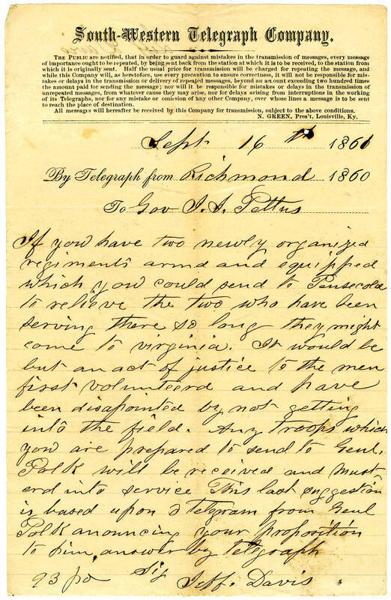 South-Western Telegraph Company.
THE PUBLIC are notified, that in order to guard against mistakes in the transmission of messages, every message
of importance ought to be repeated, by being sent back from the station at which it is to be received, to the station from
which it is originally sent. Half the usual price for transmission will be charged for repeating the message, and
while this Company will, as heretofore, use every precaution to ensure correctness, it will not be responsible for mis-
takes or delays in the transmission or delivery of repeated messages, beyond an amount exceeding two hundred times
the amount paid for sending the message; nor will it be responsible for mistakes or delays in the transmission of
unrepeated messages, from whatever cause they may arise, nor for delays arising from interruptions in the working
of its Telegraphs, nor for any mistake or omission of any other Company, over whose lines a message is to be sent
to reach the place of destination.
All messages will hereafter be received by this Company for transmission, subject to the above conditions.
N. GREEN, Pres't, Louisville, Ky.
Sept 16 th 1861
By Telegraph from Richmond 1860
To Gov J. J. Pettus
If you have two newly organized
regiments armd and equipped
which you could send to Pensecola
to relieve the two who have been
serving there so long they might
come to virginia. It would be
but an act of justice to the men
first volunteerd and have
been disapointed by not getting
into the field. Any troops which
you are prepared to send to Genl.
Polk will be received and must
erd into service This last suggestion
is based upon a telegram from Genl
Polk anouncing your proposition
to him, answer by telegraph
93 pd Sig Jeff. Davis